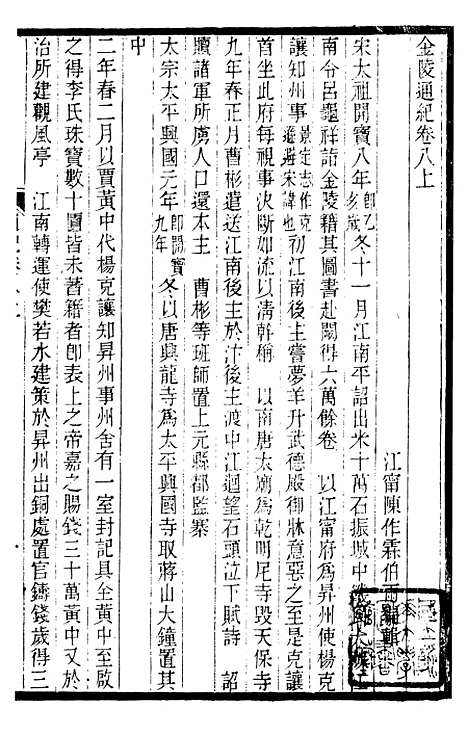 金陵通紀卷八上
江甯陳作霖伯雨
宋太祖開寶八年卽乙亥歲冬十一月江南平詔出米十萬石振城中
南令呂龜祥詣金陵籍其圖書赴闕得六萬餘卷　以江甯府爲昇州使楊克
讓知州事景定志作克遜避宋諱也初江南後主嘗夢羊升武德殿御牀意惡之至是克讓
首坐此府每視事決斷如流以淸幹稱　以南唐太廟爲乾明尼寺毀天保寺
九年春正月曹彬遣送江南後主於汴後主渡中江迴望石頭泣下賦詩　詔
贖諸軍所虜人口還本主　曹彬等班師置上元縣都監寨
太宗太平興國元年卽開寶九年冬以唐興龍寺爲太平興國寺取蔣山大鐘置其
中
二年春二月以賈黃中代楊克讓知昇州事州舍有一室封記具全黃中至啟
之得李氏珠寶數十匱皆未著籍者卽表上之帝嘉之賜錢三十萬黃中又於
治所建觀風亭　江南轉運使樊若水建策於昇州出銅處置官鑄錢歲得三